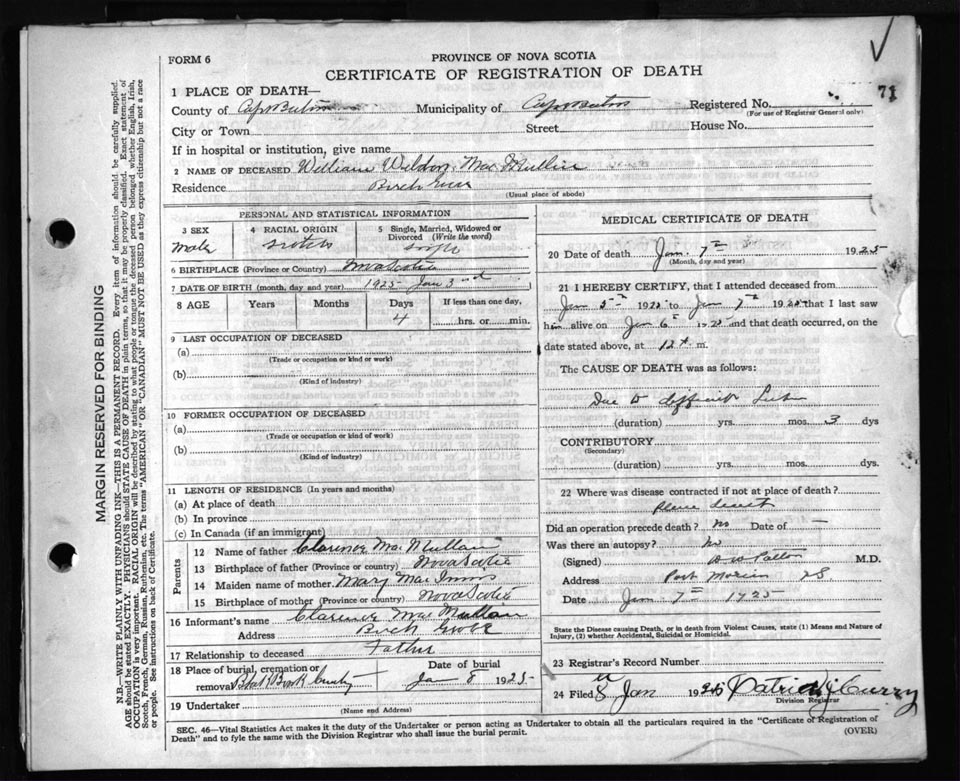 FORM 6
PROVINCE OF NOVA SCOTIA
CERTIFICATE OF REGISTRATION OF DEATH
71
1 PLACE OF DEATH—
County of Cape Breton Municipality of Cape Breton Registered No.
(For use of Registrar General only)
City or Town Street House No.
If in hospital or institution, give name
2 NAME OF DECEASED William Weldon Mac Mullin
Residence Birch Grove
(Usual place of abode)
PERSONAL AND STATISTICAL INFORMATION
3 SEX
male
4 RACIAL ORIGIN
Scotch
5 Single, Married, Widowed or Divorced (Write the word)
single
6 BIRTHPLACE (Province or Country) Nova Scotia
7 DATE OF BIRTH (month, day and year) 1925 Jan 3rd
8 AGE Years Months Days If less than one day,
4 hrs. or min.
9 LAST OCCUPATION OF DECEASED
(a)
(Trade or occupation or kind or work)
(b)
(Kind of industry)
10 FORMER OCCUPATION OF DECEASED
(a)
(Trade or occupation or kind or work)
(b)
(Kind of industry)
11 LENGTH OF RESIDENCE (In years and months)
(a) At place of death
(b) In province
(c) In Canada (if an immigrant)
Parents
12 Name of father Clarence Mac Mullan
13 Birthplace of father (Province or country) Nova Scotia
14 Maiden name of mother Mary Mac Innis
15 Birthplace of mother (Province or country) Nova Scotia
16 Informant's name Clarence Mac Mullan
Address Birch Grove
17 Relationship to deceased Father
18 Place of burial, cremation or removal Black Brook Cemetry
Date of burial
Jan 8 1925
19 Undertaker
(Name end Address)
MEDICAL CERTIFICATE OF DEATH
20 Date of death Jan. 7th 1925
(Month, day and year)
21 I HEREBY CERTIFY, that I attended deceased from
Jan 5th 192 to Jan 7th 192 that I last saw
him alive on Jan 6th 192 and that death occurred, on the
date stated above, at 12 m.
The CAUSE OF DEATH was as follows:
Due to difficult
(duration) yrs. mos. 3 dys
CONTRIBUTORY
(Secondary)
(duration) yrs. mos. dys.
22 Where was disease contracted if not at place of death?
Place
Did an operation precede death? No Date of —
Was there an autopsy? No
(Signed) M.D.
Address Port Morien NS
Date Jan 7th 1925
State the Disease causing Death, or in death from Violent Causes, state (1) Means and Nature of
Injury, (2) whether Accidental, Suicidal or Homicidal.
23 Registrar's Record Number
24 Filed 8 Jan 1925 Patrick Curry
Division Registrar
SEC. 46—Vital Statistics Act makes it the duty of the Undertaker or person acting as Undertaker to obtain all the particulars required in the "Certificate of Registration of
Death" and to fyle the same with the Division Registrar who shall issue the burial permit.
(OVER)
MARGIN RESERVED FOR BINDING
N.B.—WRITE PLAINLY WITH UNFADING INK—THIS IS A PERMANENT RECORD. Every item of information should be carefully supplied.
AGE should be stated EXACTLY. PHYSICIANS should STATE CAUSE OF DEATH in plain terms, so that it may be properly classified. Exact statement of
OCCUPATION is very important. RACIAL ORIGIN will be described by stating to what people or tongue the deceased person belonged whether English, Irish,
Scotch, French, German, Russian, Ruthenian, etc. The terms "AMERICAN" OR "CANADIAN" MUST NOT BE USED as they express citizenship but not a race
or people. See instructions on back of Certificate.